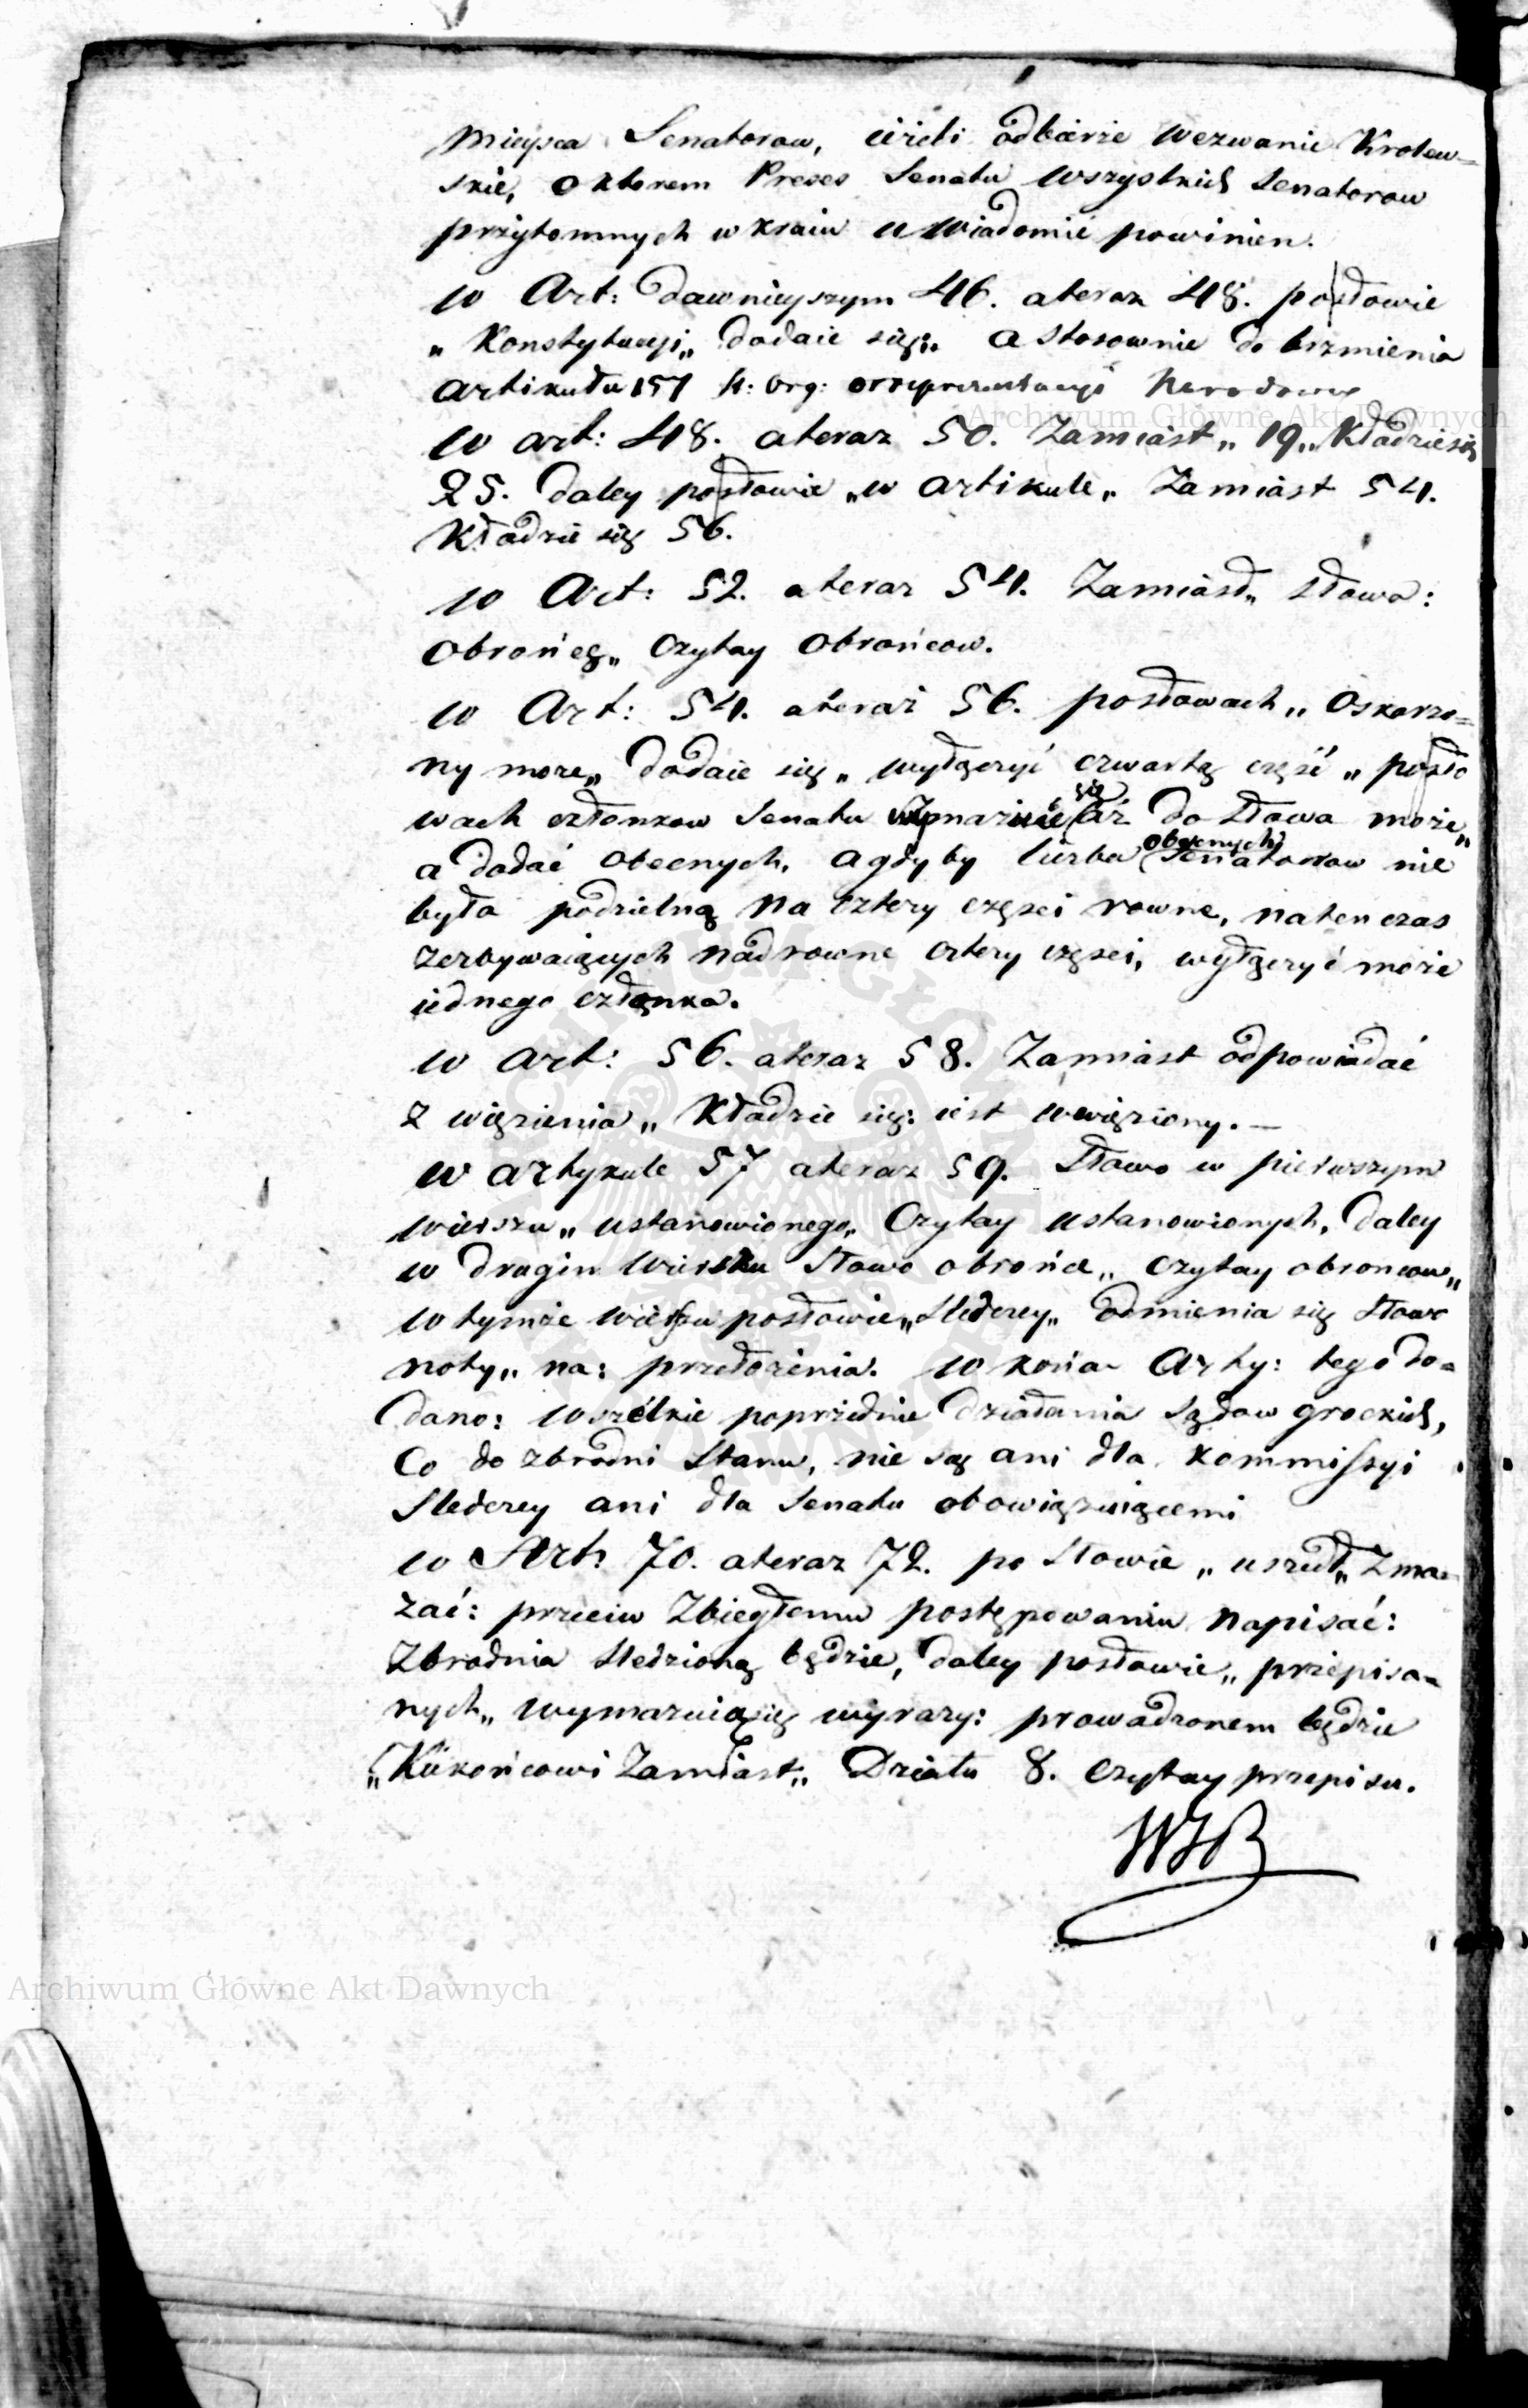 Mieysca Senatorow, ieżeli odbierze wezwanie Krolew=
skie, o ktorem Prezes Senatu wszystkich Senatorow
przytomnych w kraiu uwiadomić powinien.
w Art: dawnieyszym 46. a teraz 48. po słowie
„ Konstytucyi„ dodaie się:„ a stosownie do brzmienia
artikułu 157 St: Org: o reprezentacyi Narodowey
w art: 48. a teraz 50. Zamiast „ 19„ Kładzie się
25. daley po słowie „w artikule„ Zamiast 54.
Kładzie się 56.
w Art: 52. a teraz 54. Zamiast„ słowa:
Obrońcę„ czytay Obrońcow.
w Art: 54. a teraz 56. po słowach „ Oskarżo=
ny może„ dodaie się „ wyłączyć czwartą część „ po sło
wach członkow Senatu zmazuie się aż do słowa może„
a dodać obecnych, a gdyby liczba obecnych Senatorow nie
była podzielną na cztery części rowne, natenczas
zezbywaiących nad rowne cztery części, wyłączyć może
iednego członka.
w art: 56. a teraz 58. Zamiast odpowiadać
z więzienia„ Kładzie się: iest uwięziony. —
w artykule 57 a teraz 59. Słowo w pierwszym
wierszu „ ustanowionego„ Czytay ustanowionych, daley
w drugim wierszu słowo obrońcę„ czytay obroncow„
w tymże wierszu po słowie„ sledczey„ odmienia się słowo
noty„ na: przełożenia. w końcu Arty: tego do=
dano: wszelkie poprzednie działania Sądow grockich,
Co do zbrodni Stanu, nie są ani dla Kommissyi
Sledczey ani dla Senatu obowiązuiącemi
w Art: 70. a teraz 72. po słowie „ uszedł„ Zma=
zać: przeciw Zbiegłemu postępowaniu napisać:
Zbrodnia sledzioną będzie, daley po słowie „ przepisa=
nych„ wymazuią się wyrazy: prowadzonem będzie
„Ku końcowi Zamiast„ Działu 8. czytay przepisu.
Archiwum Główne Akt Dawnych
Archiwum Główne Akt Dawnych